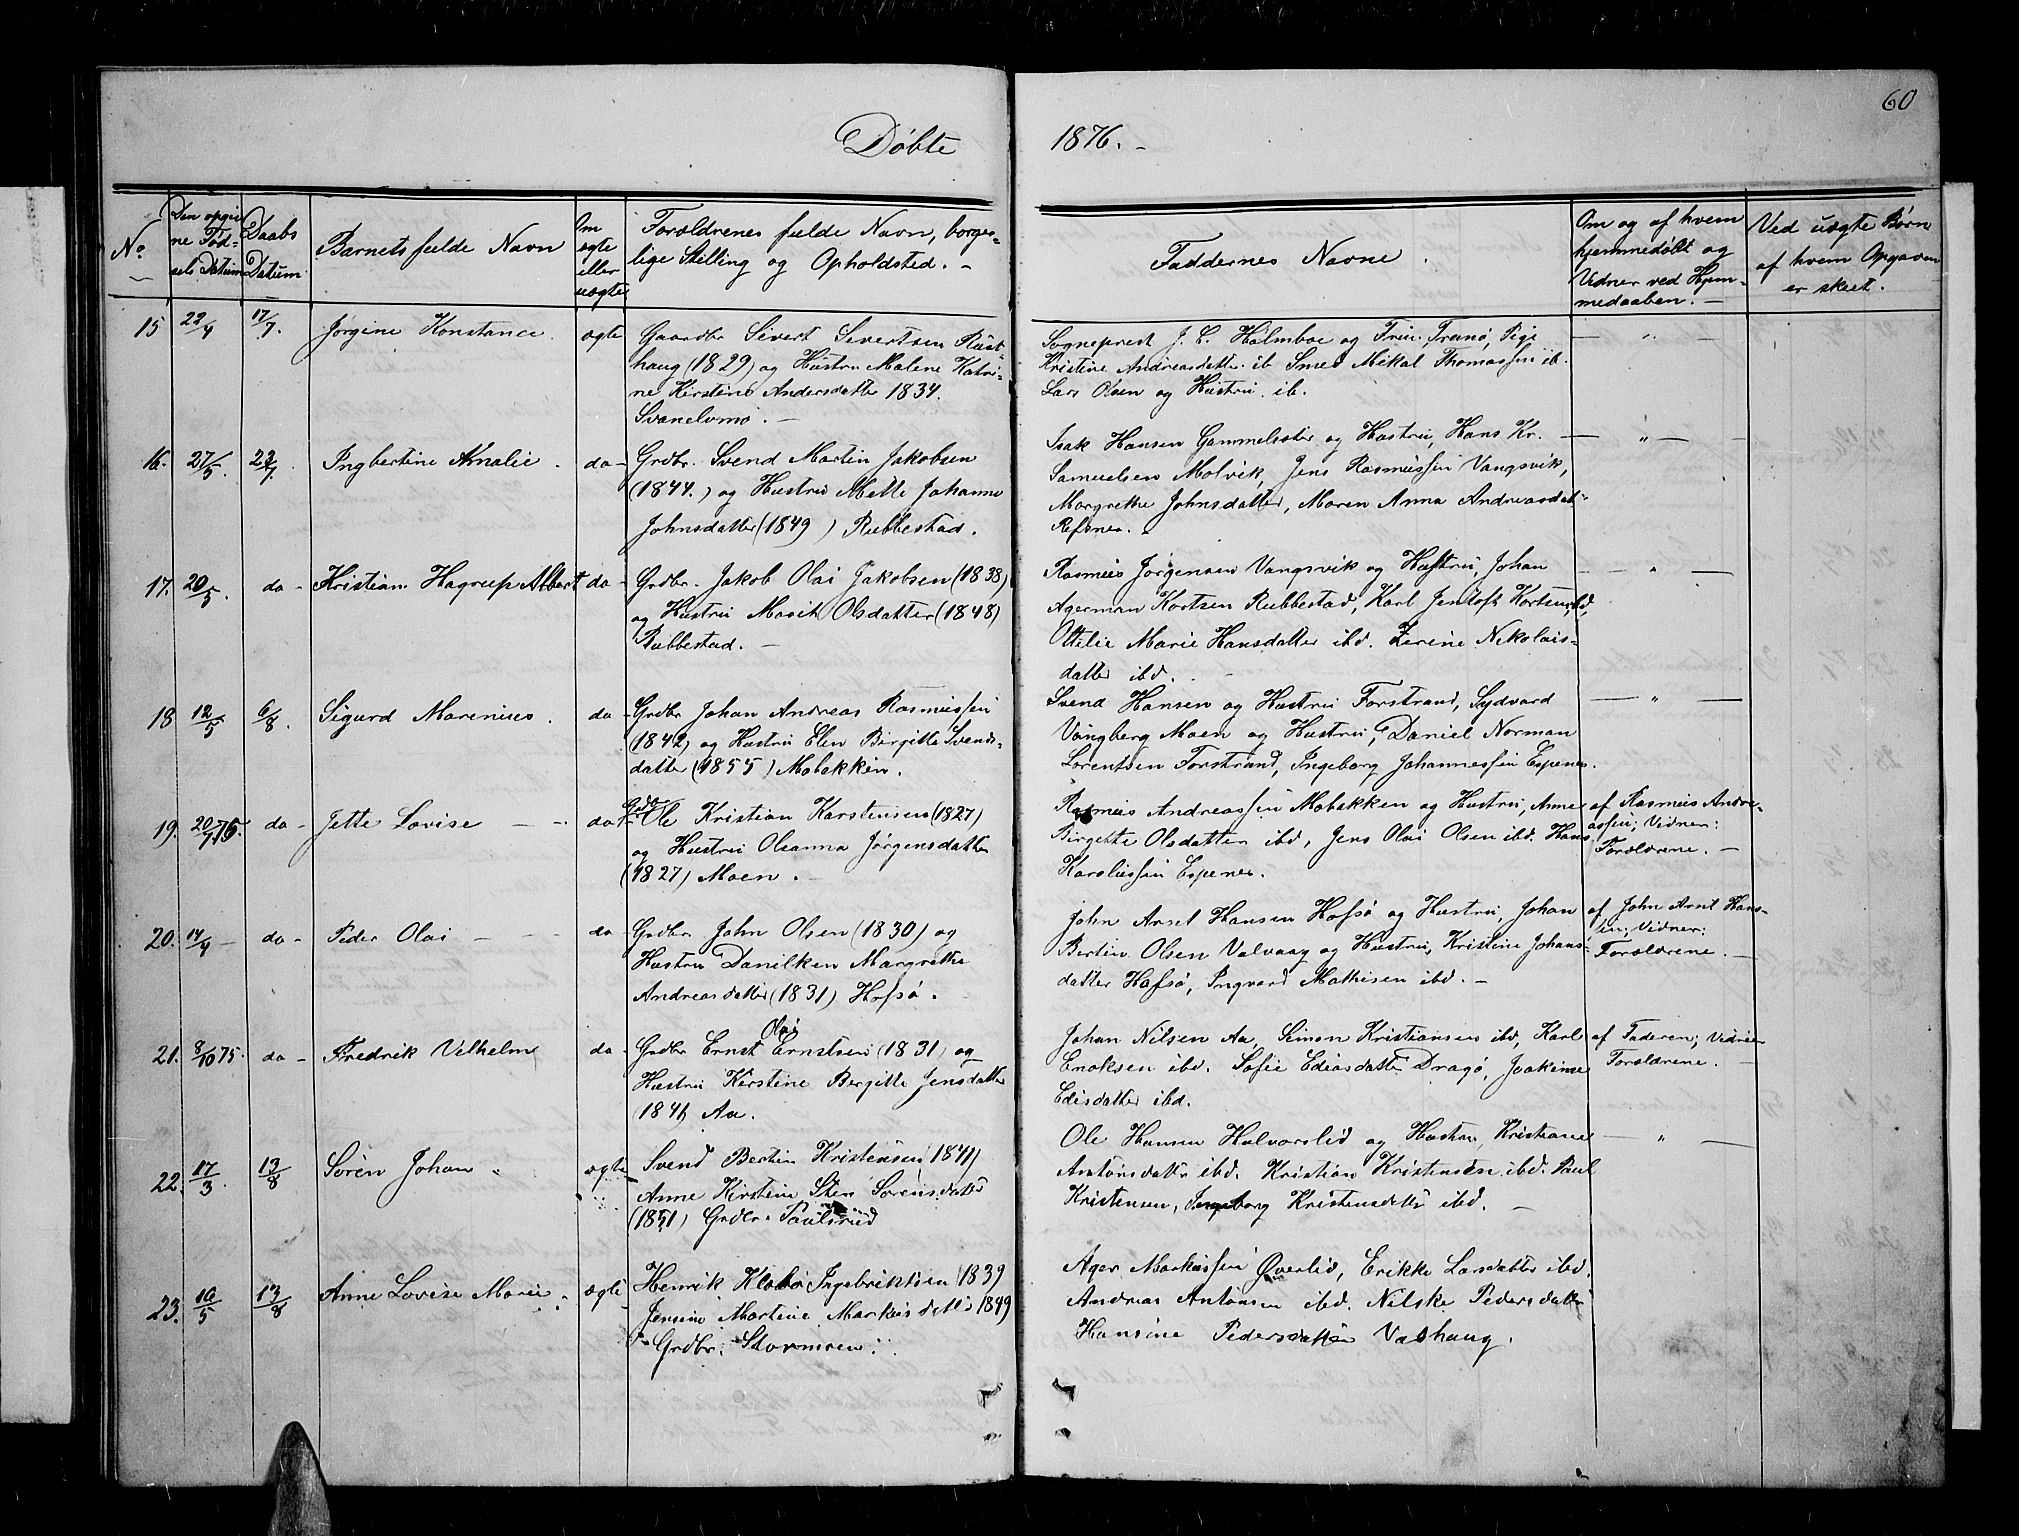 60
Døbte
1876.-
No
Den opgivne Fødsels Datum
Daabs Datum
Barnets fulde Navn
Om ægte eller uægte
Forældrenes fulde Navn, borgerlige Stilling og Opholdsted.-
Faddernes Navne.
Om og af hvem hjemmedøbt og Vidner ved Hjemmedaaben.-
Ved uægte Børn af hvem Opgaven er skeet.
15 22/4 17/7. Jørgine Konstance. ægte
Gaardbr Sivert Sivertsen Rust-
haug (1829) og Hustru Malene Katri-
ne Kirstine Andersdatter 1834.
Svanelvmo.-
Sogneprest J. C. Holmboe og Frue, Tranø, Pige
Kristine Andreasdatter ib Smed Mikal Thomassen ib.
Lars Olsen og Hustru ib.
16. 27/5 Ingbertine Amalie. do-
Grdbr. Svend Martin Jakobsen
(1844.) og Hustru Mette Johanne
Johnsdatter (1849) Rubbestad.
Isak Hansen Gammelsæter og Hustru, Hans Kr.
Samuelsen Molvik, Jens Rasmussen Vangsvik,
Margrethe Johnsdatter, Maren Anna Andreasdat-
Refsnes.
17. 20/5. do- Kristian Hagrup Albert do-
Grdbr. Jakob Olai Jakobsen (1838)
og Hustru Marit Olsdatter (1848)
Rubbestad.-
Rasmus Jørgensen Vangsvik og Hustru, Johan
Agerman Kortsen Rubbestad, Karl Jentoft Kortsen ibd,
Ottilie Marie Hansdatter ibd. Zerine Nikolais-
datter ibd.
18 12/5 6/8. Sigurd Marenius. do-
Grdbr Johan Andreas Rasmussen
(1842) og Hustru Elen Birgitte Svends-
datter (1855) Mobakken.
Svend Hansen og Hustru Forstrand, Sydvard
Vangberg Moen og Hustru, Daniel Norman
Lorentsen Forstrand, Ingeborg Johannessen Espenes.
19. 20/7 75. do- Jette Lovise - - do-
Grdbr Ole Kristian Karstensen (1827)
og Hustru Olsanna Jørgensdatter
(1827) Moen.-
Rasmus Andreassen Mobakken og Hustru, Anne
Birgitte Olsdatter ibd, Jens Olai Olsen ibd. Hans
Karoliussen Espenes.
af Rasmus Andre-
assen; Vidner:
Forældrene.-
20. 14/4 - do- Peder Olai - - do-
Grdbr John Olsen (1830) og
Hustru Danilken Margrethe
Andreasdatter (1831) Hofsø.
John Arnt Hansen Hofsø og Hustru, Johan
Bertin Olsen Valvaag og Hustru, Kristine Johans-
datter Hofsø, Ingvard Mathisen ibd.-
af John Arnt Han-
sen; Vidner:
Forældrene.-
21. 8/10 75. do- Fredrik Vilhelm do-
Grdbr Ernst Olai Ernstsen (1831) og
Hustru Kirstine Bergitte Jensdatter
1846 Aa.
Johan Nilsen Aa, Simon Kristiansen ibd, Karl
Enoksen ibd. Sofie Ediasdatter Dragø, Joakime
Edisdatter ibd.
af Faderen; Vidner
Forældrene.-
22. 17/3 13/8 Søren Johan. ægte
Svend Bertin Kristensen 1841)
Anne Kirstine Sten Sørensdatter
(1851) Grdbr. Paulsrud
Ole Hansen Halvorslid og Hustru, Kristiane
Antonsdatter ibd. Kristian Kristensen ibd. Paul
Kristensen, Ingeborg Kristensdatter ibd.-
23. 10/5 13/8 Anne Lovise Marie. ægte
Henrik Klæbo Ingebriktsen 1839
Jensine Martine Markusdatter 1849
Grdbr. Stormoen.
Ager Markussen Øverlid, Erikke Larsdatter ibd.
Andreas Antonsen ibd. Nilske Pedersdatter
Hansine Pedersdatter Vashaug.